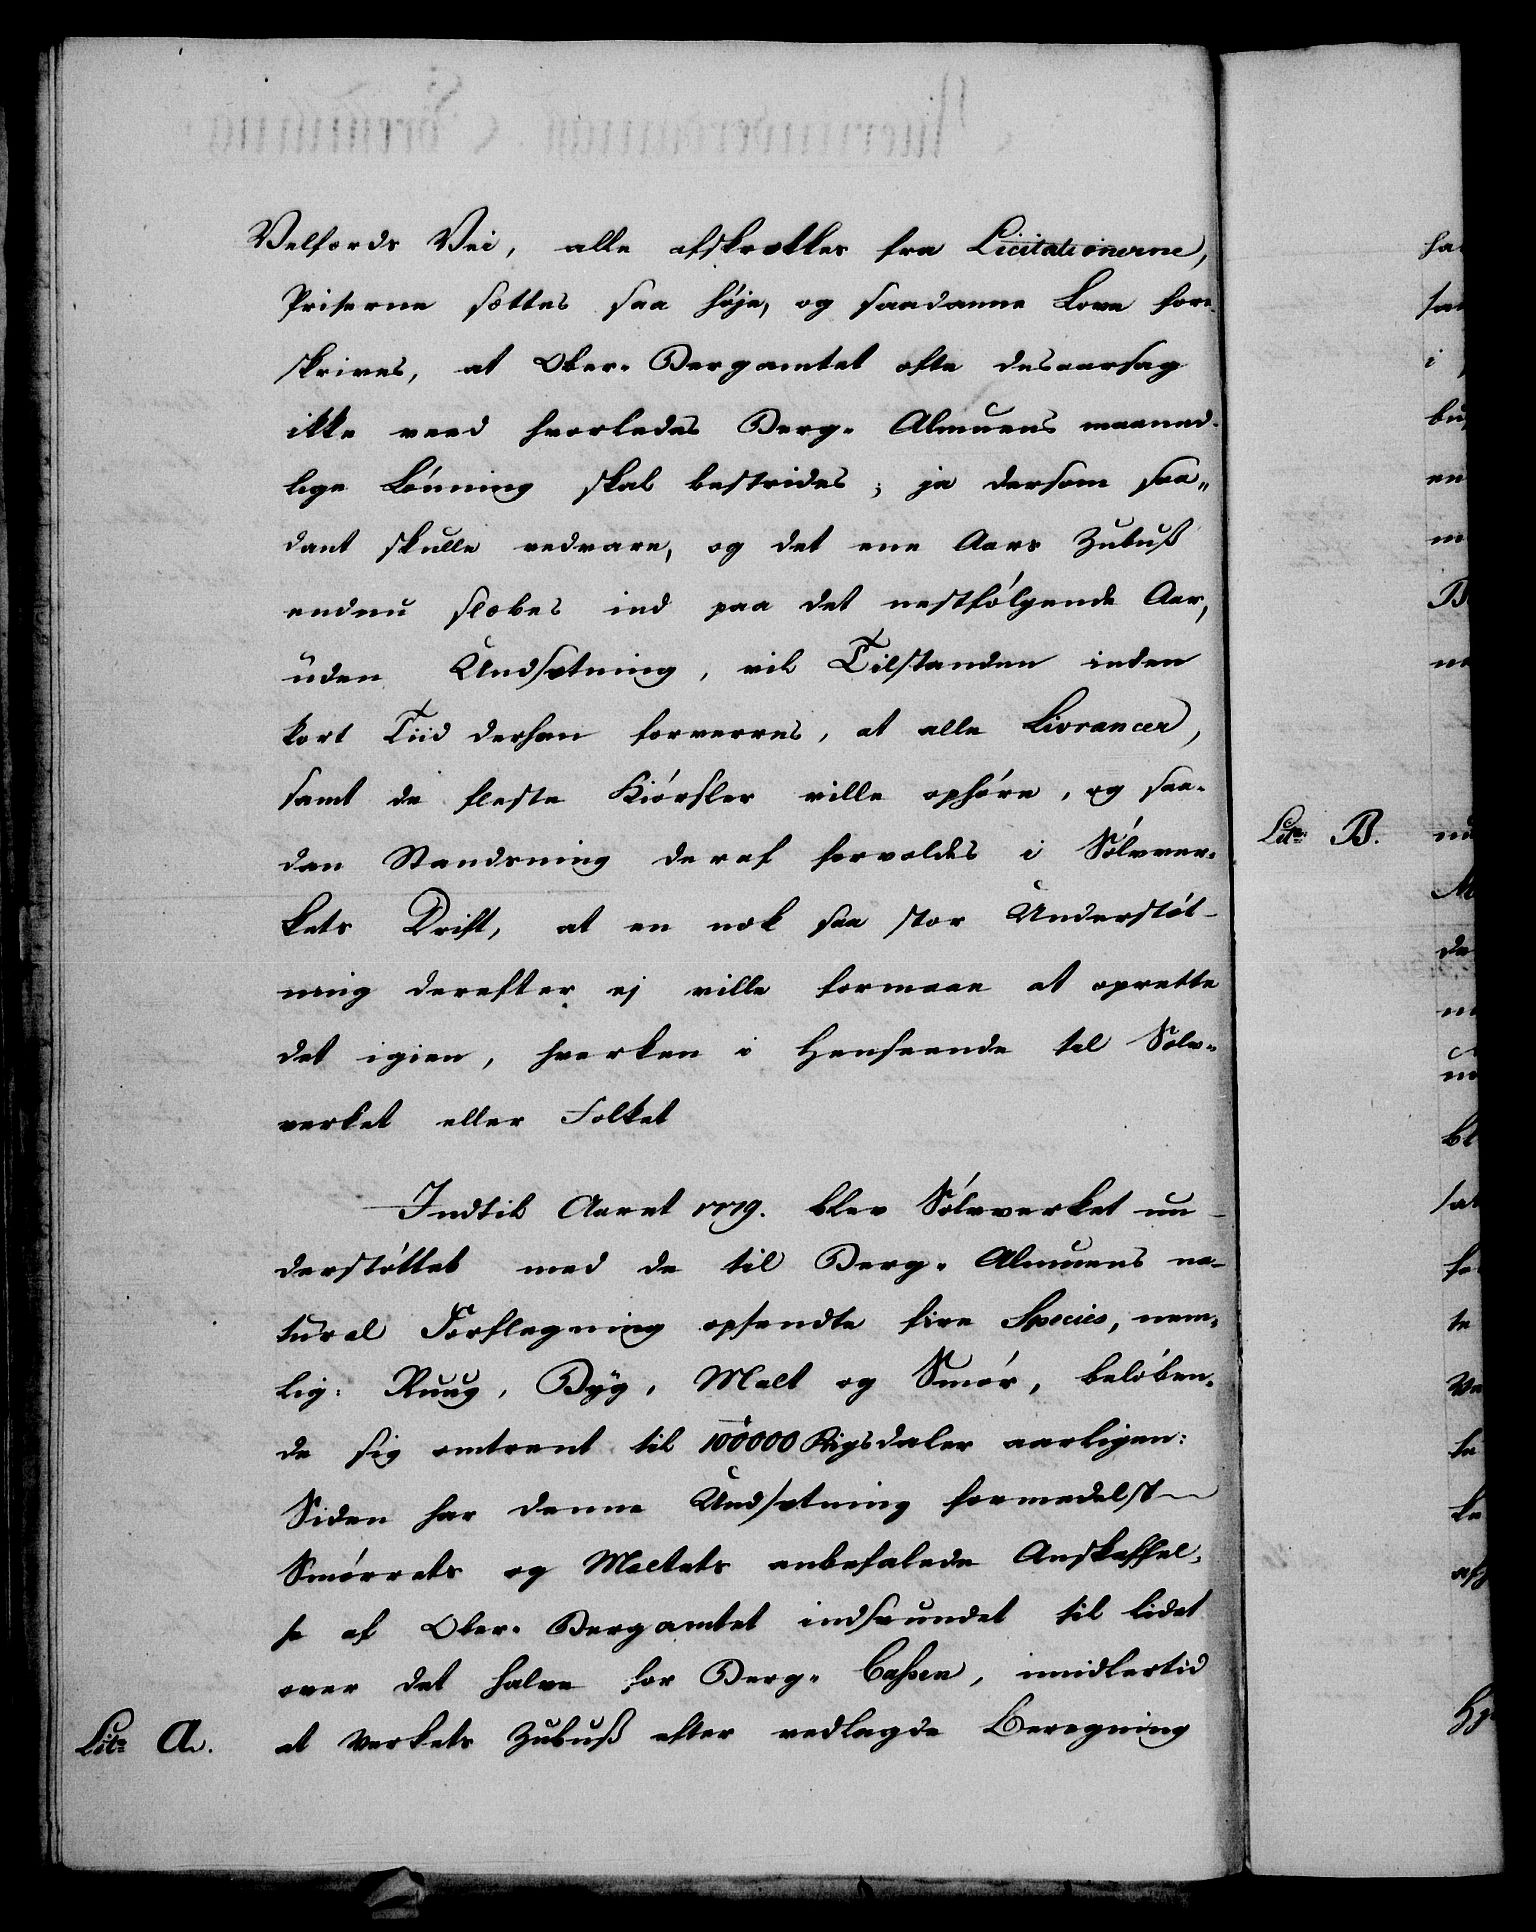 Velfærds Vei, alle afskrækkes fra Licitationerne,
Priserne sættes saa høje, og saadanne Love fore-
skrives, at Ober-Bergamtet ofte desaarsag
ikke veed hvorledes Berg-Almuens maaned-
lige Lønning skal bestrides; ja dersom saa-
dant skulle vedvare, og det ene Aars Zubuß
endnu slæbes ind paa det nestfølgende Aar,
uden Undsætning, vil Tilstanden inden
kort Tiid derhen forverres, at alle Livrancer,
samt de fleste Kiørsler ville ophøre, og saa-
dan Standsning deraf forvoldes i Sølvver-
kets Drift, at en nok saa stor Understøt-
ning derefter ej ville formaae at oprette
det igien, hverken i Henseende til Sølv-
verket eller Folket
Indtil Aaret 1779. blev Sølvverket un-
derstøttet med de til Berg-Almuens na-
tural Forflegning opsendte fire Species, nem-
lig: Ruug, Byg, Malt og Smør, beløben-
de sig omtrent til 100000 Rigsdaler aarligen:
Siden har denne Undsætning formedelst
Smørrets og Maltets anbefalede Anskaffel-
se af Ober-Bergamtet indsvundet til lidet
over det halve for Berg-Cassen, imidlertid
Litr A. at Verkets Zubuß efter vedlagde Beregning
Litr B.